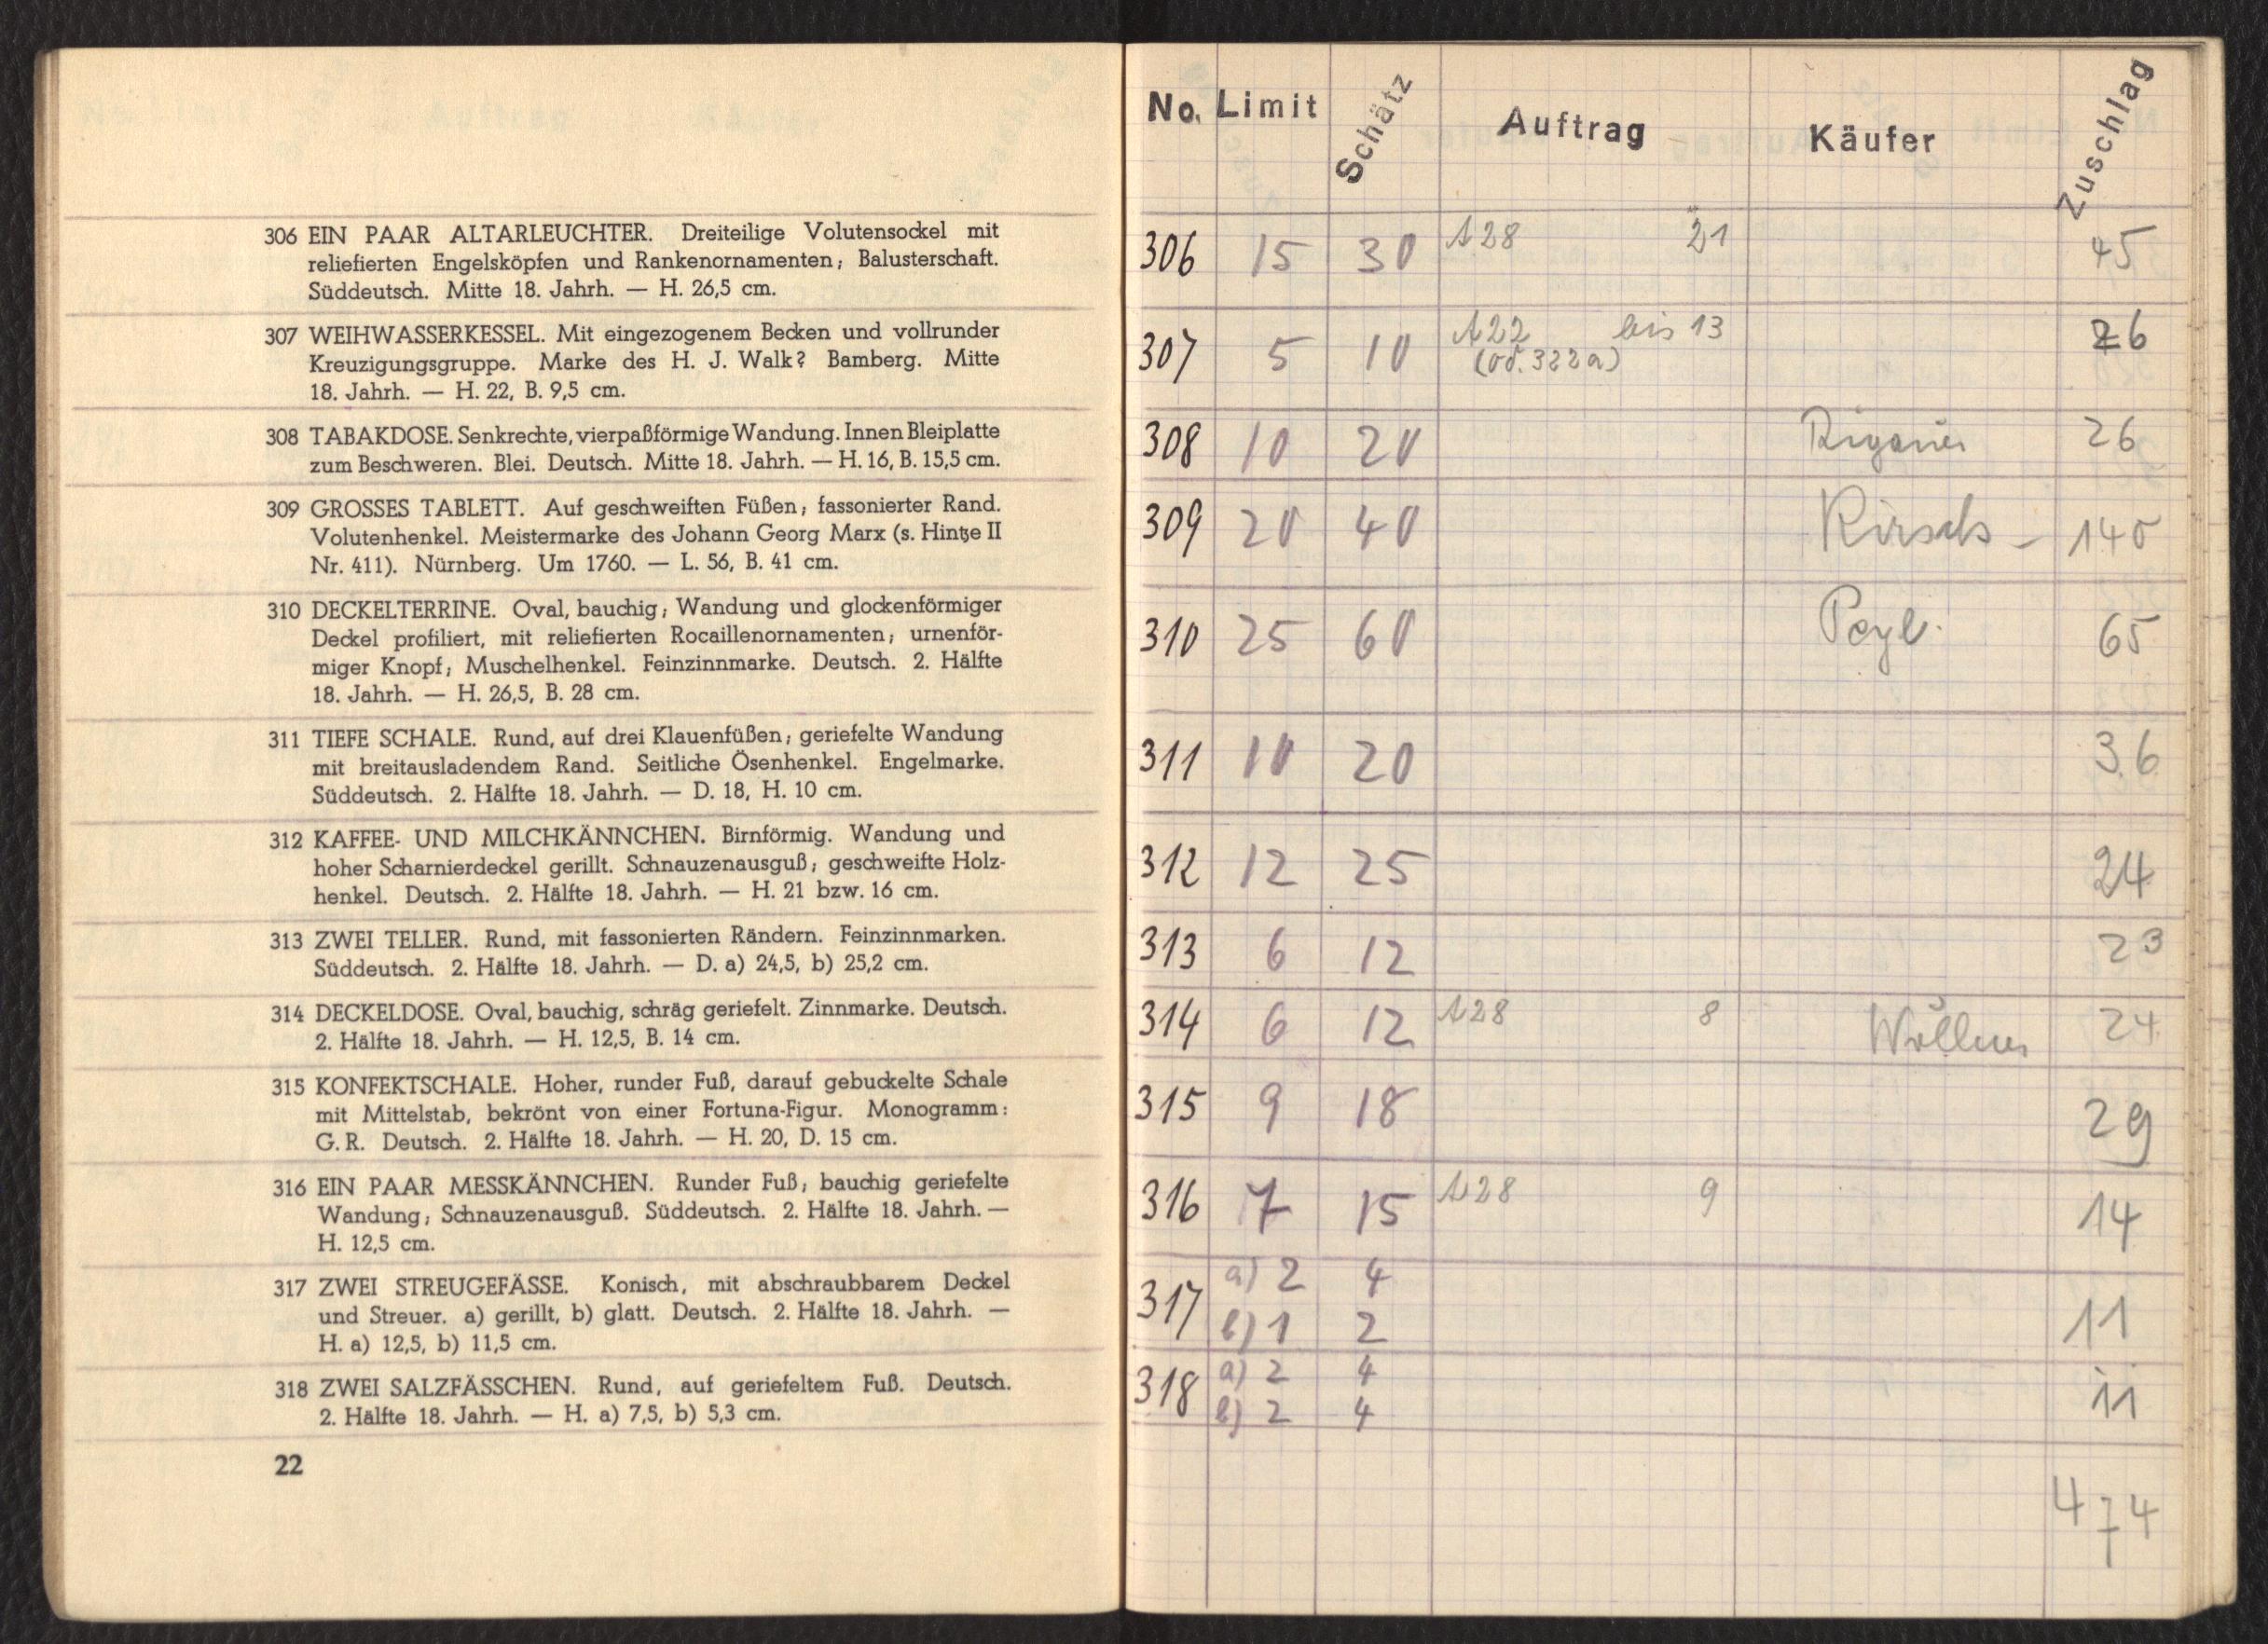 306 EIN PAAR ALTARLEUCHTER. Dreiteilige Volutensockel mit
reliefierten Engelsköpfen und Rankenornamenten; Balusterschaft.
Süddeutsch. Mitte 18. Jahrh. — H. 26,5 cm.
307 WEIHWASSERKESSEL. Mit eingezogenem Becken und vollrunder
Kreuzigungsgruppe. Marke des H. J. Walk? Bamberg. Mitte
18. Jahrh. — H. 22, B. 9,5 cm.
308 TABAKDOSE. Senkrechte, vierpaßförmige Wandung. Innen Bleiplatte
zum Beschweren. Blei. Deutsch. Mitte 18. Jahrh. — H. 16, B. 15,5 cm.
309 GROSSES TABLETT. Auf geschweiften Füßen; fassonierter Rand.
Volutenhenkel. Meistermarke des Johann Georg Marx (s. Hintze II
Nr. 411). Nürnberg. Um 1760. — L. 56, B. 41 cm.
310 DECKELTERRINE. Oval, bauchig; Wandung und glockenförmiger
Deckel profiliert, mit reliefierten Rocaillenornamenten; urnenför-
miger Knopf; Muschelhenkel. Feinzinnmarke. Deutsch. 2. Hälfte
18. Jahrh. — H. 26,5, B. 28 cm.
311 TIEFE SCHALE. Rund, auf drei Klauenfüßen; geriefelte Wandung
mit breitausladendem Rand. Seitliche Ösenhenkel. Engelmarke.
Süddeutsch. 2. Hälfte 18. Jahrh. — D. 18, H. 10 cm.
312 KAFFEE- UND MILCHKÄNNCHEN. Birnförmig. Wandung und
hoher Scharnierdeckel gerillt. Schnauzenausguß; geschweifte Holz-
henkel. Deutsch. 2. Hälfte 18. Jahrh. — H. 21 bzw. 16 cm.
313 ZWEI TELLER. Rund, mit fassonierten Rändern. Feinzinnmarken.
Süddeutsch. 2. Hälfte 18. Jahrh. — D. a) 24,5, b) 25,2 cm.
314 DECKELDOSE. Oval, bauchig, schräg geriefelt. Zinnmarke. Deutsch.
2. Hälfte 18. Jahrh. — H. 12,5, B. 14 cm.
315 KONFEKTSCHALE. Hoher, runder Fuß, darauf gebuckelte Schale
mit Mittelstab, bekrönt von einer Fortuna-Figur. Monogramm:
G. R. Deutsch. 2. Hälfte 18. Jahrh. — H. 20, D. 15 cm.
316 EIN PAAR MESSKÄNNCHEN. Runder Fuß; bauchig geriefelte
Wandung; Schnauzenausguß. Süddeutsch. 2. Hälfte 18. Jahrh. —
H. 12,5 cm.
317 ZWEI STREUGEFÄSSE. Konisch, mit abschraubbarem Deckel
und Streuer. a) gerillt, b) glatt. Deutsch. 2. Hälfte 18. Jahrh. —
H. a) 12,5, b) 11,5 cm.
318 ZWEI SALZFÄSSCHEN. Rund, auf geriefeltem Fuß. Deutsch.
2. Hälfte 18. Jahrh. — H. a) 7,5, b) 5,3 cm.
22
No. Limit Schätz Auftrag Käufer Zuschlag
306 15 30 A28 21 45
307 5 10 A22 bis 13 26
(od. 322a)
308 10 20 26
309 20 40 Kirsch - 140
310 25 60 65
311 10 20 36
312 12 25 24
313 6 12 23
314 6 12 A28 8 24
315 9 18 29
316 7 15 A28 9 14
317 a) 2 4 11
b) 1 2
318 a) 2 4 11
b) 2 4
474